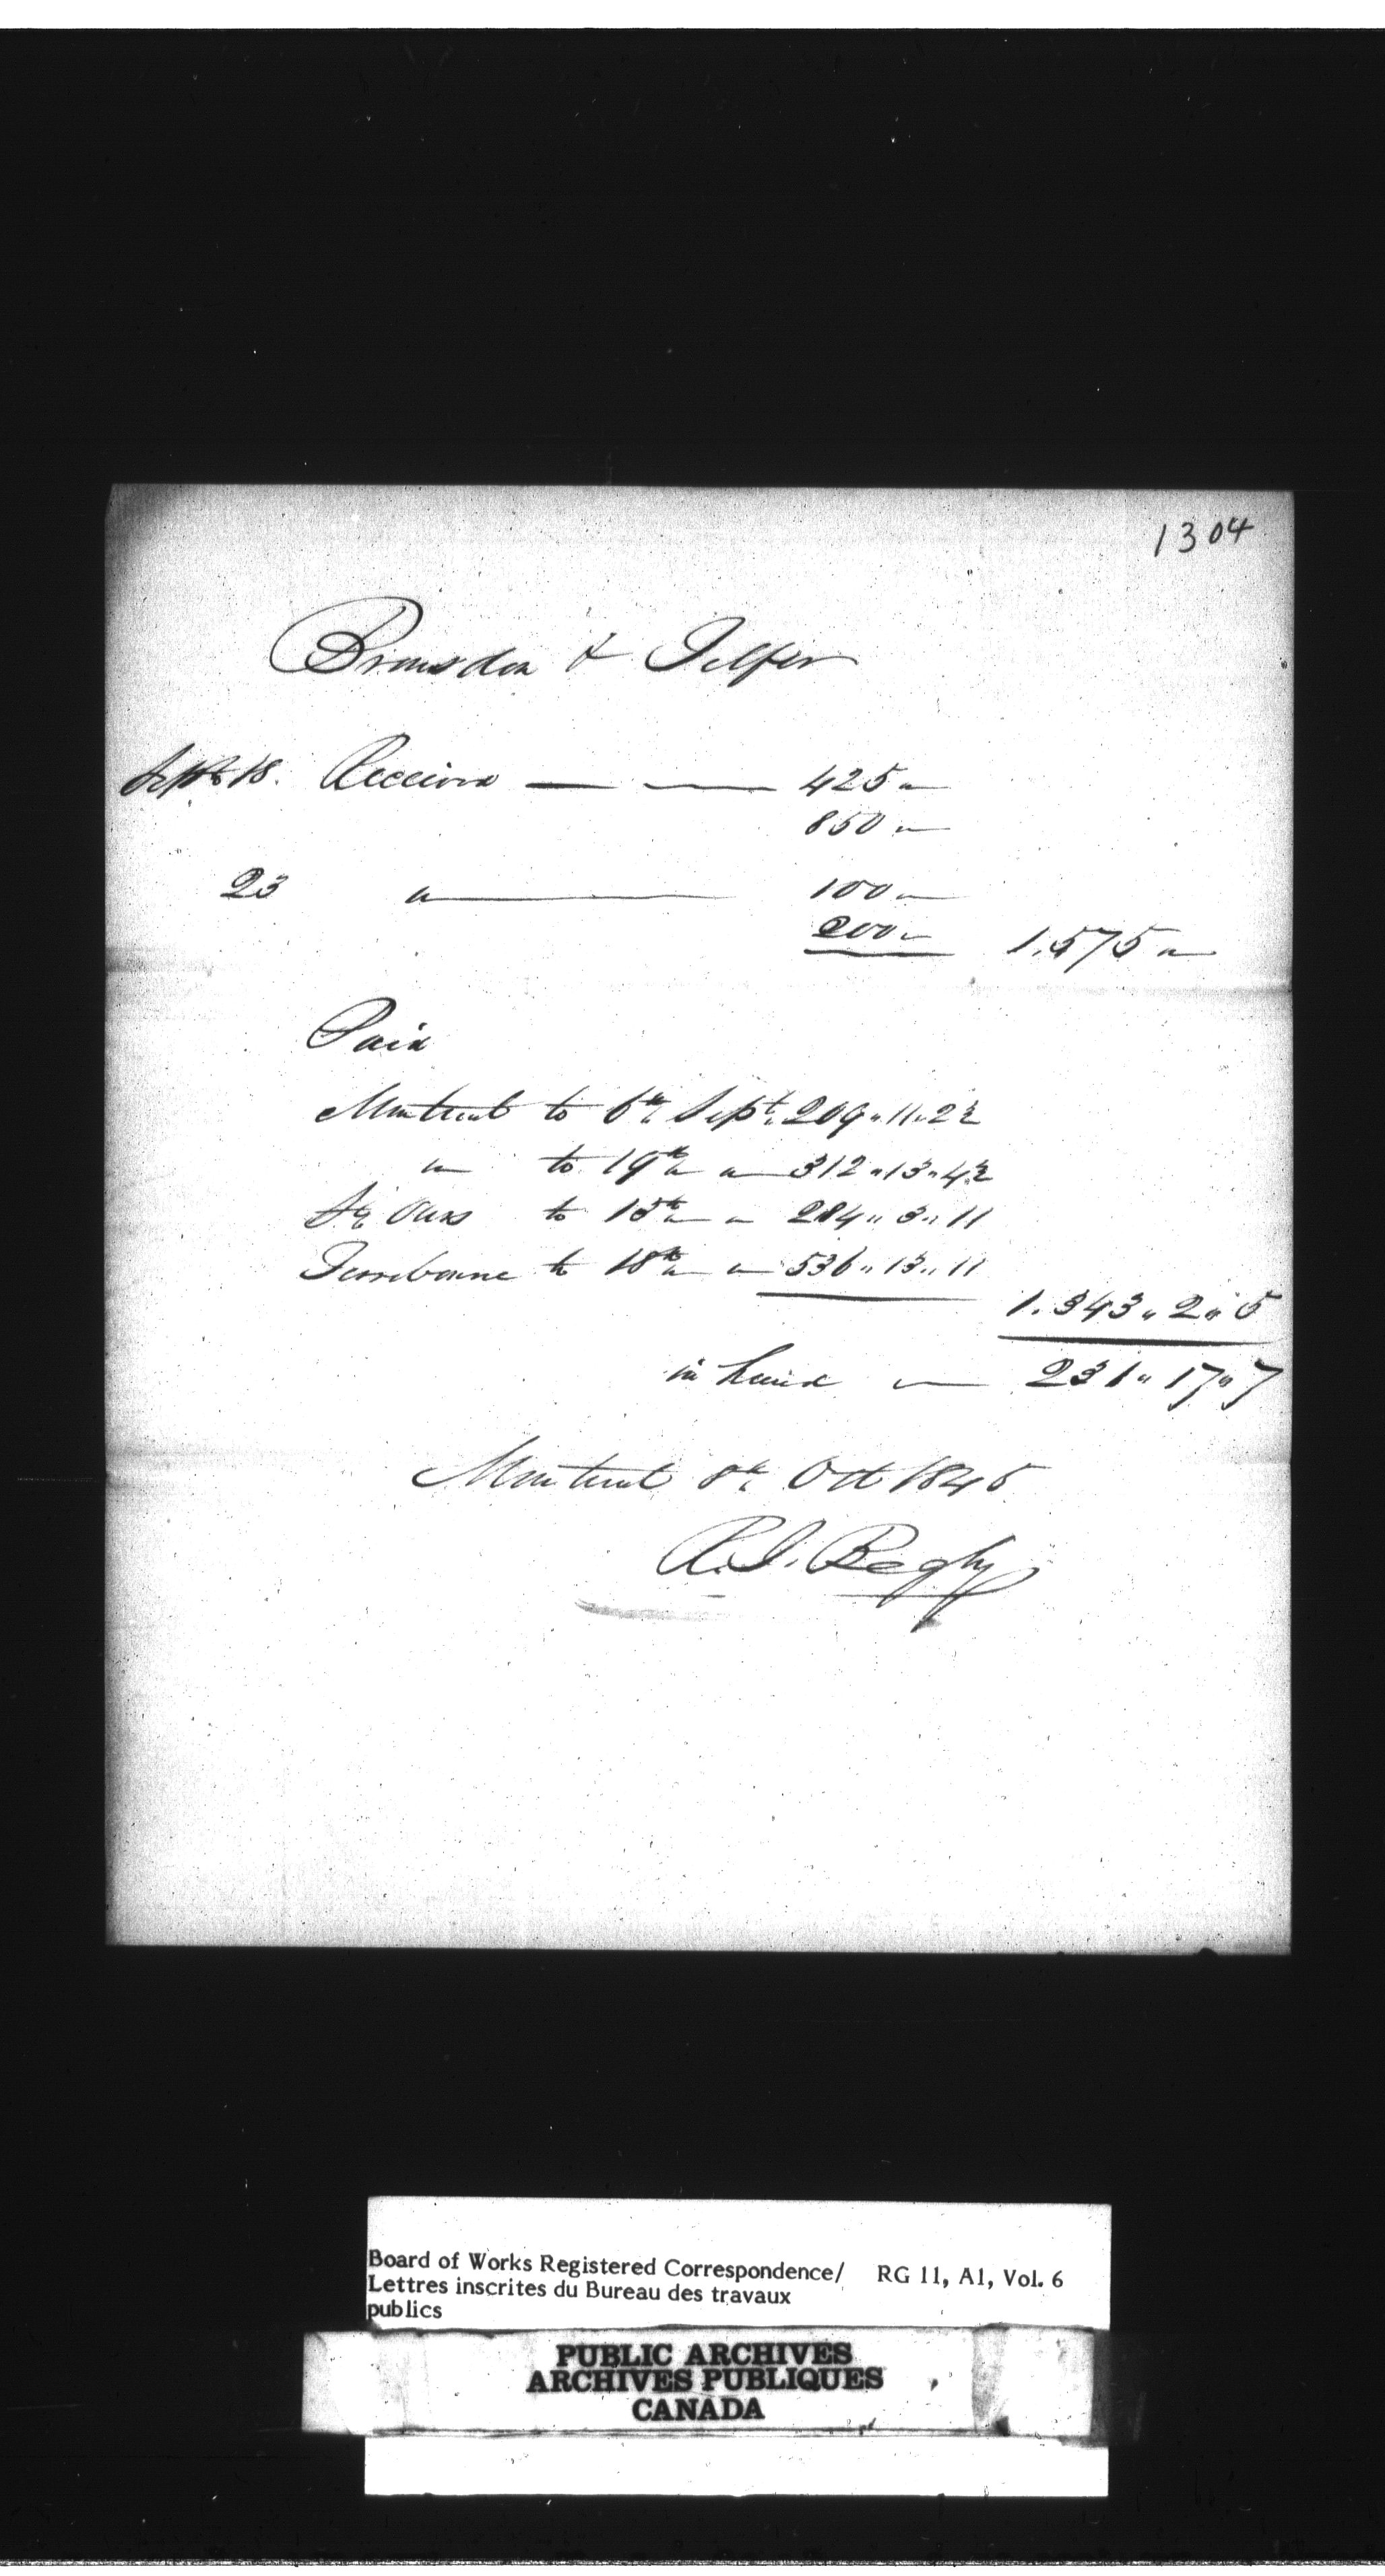 1304
Bronsdon & Telfer
Sept 18. Received — — 425 "
850 "
23 " — 100 "
200 " 1.575 "
Paid
Montreal to 6th Sept. 209 " 11 " 2½
" to 19th " 312 " 13 " 4½
St Ours to 15th " 284 " 3 " 11
Terrebonne to 18th " 536 " 13 " 11
1.343 " 2 " 5
in hand — 231 " 17 " 7
Montreal 8th Oct 1845
R.J. Begly
Board of Works Registered Correspondence/ RG 11, A1, Vol. 6
Lettres inscrites du Bureau des travaux
publics
PUBLIC ARCHIVES
ARCHIVES PUBLIQUES
CANADA